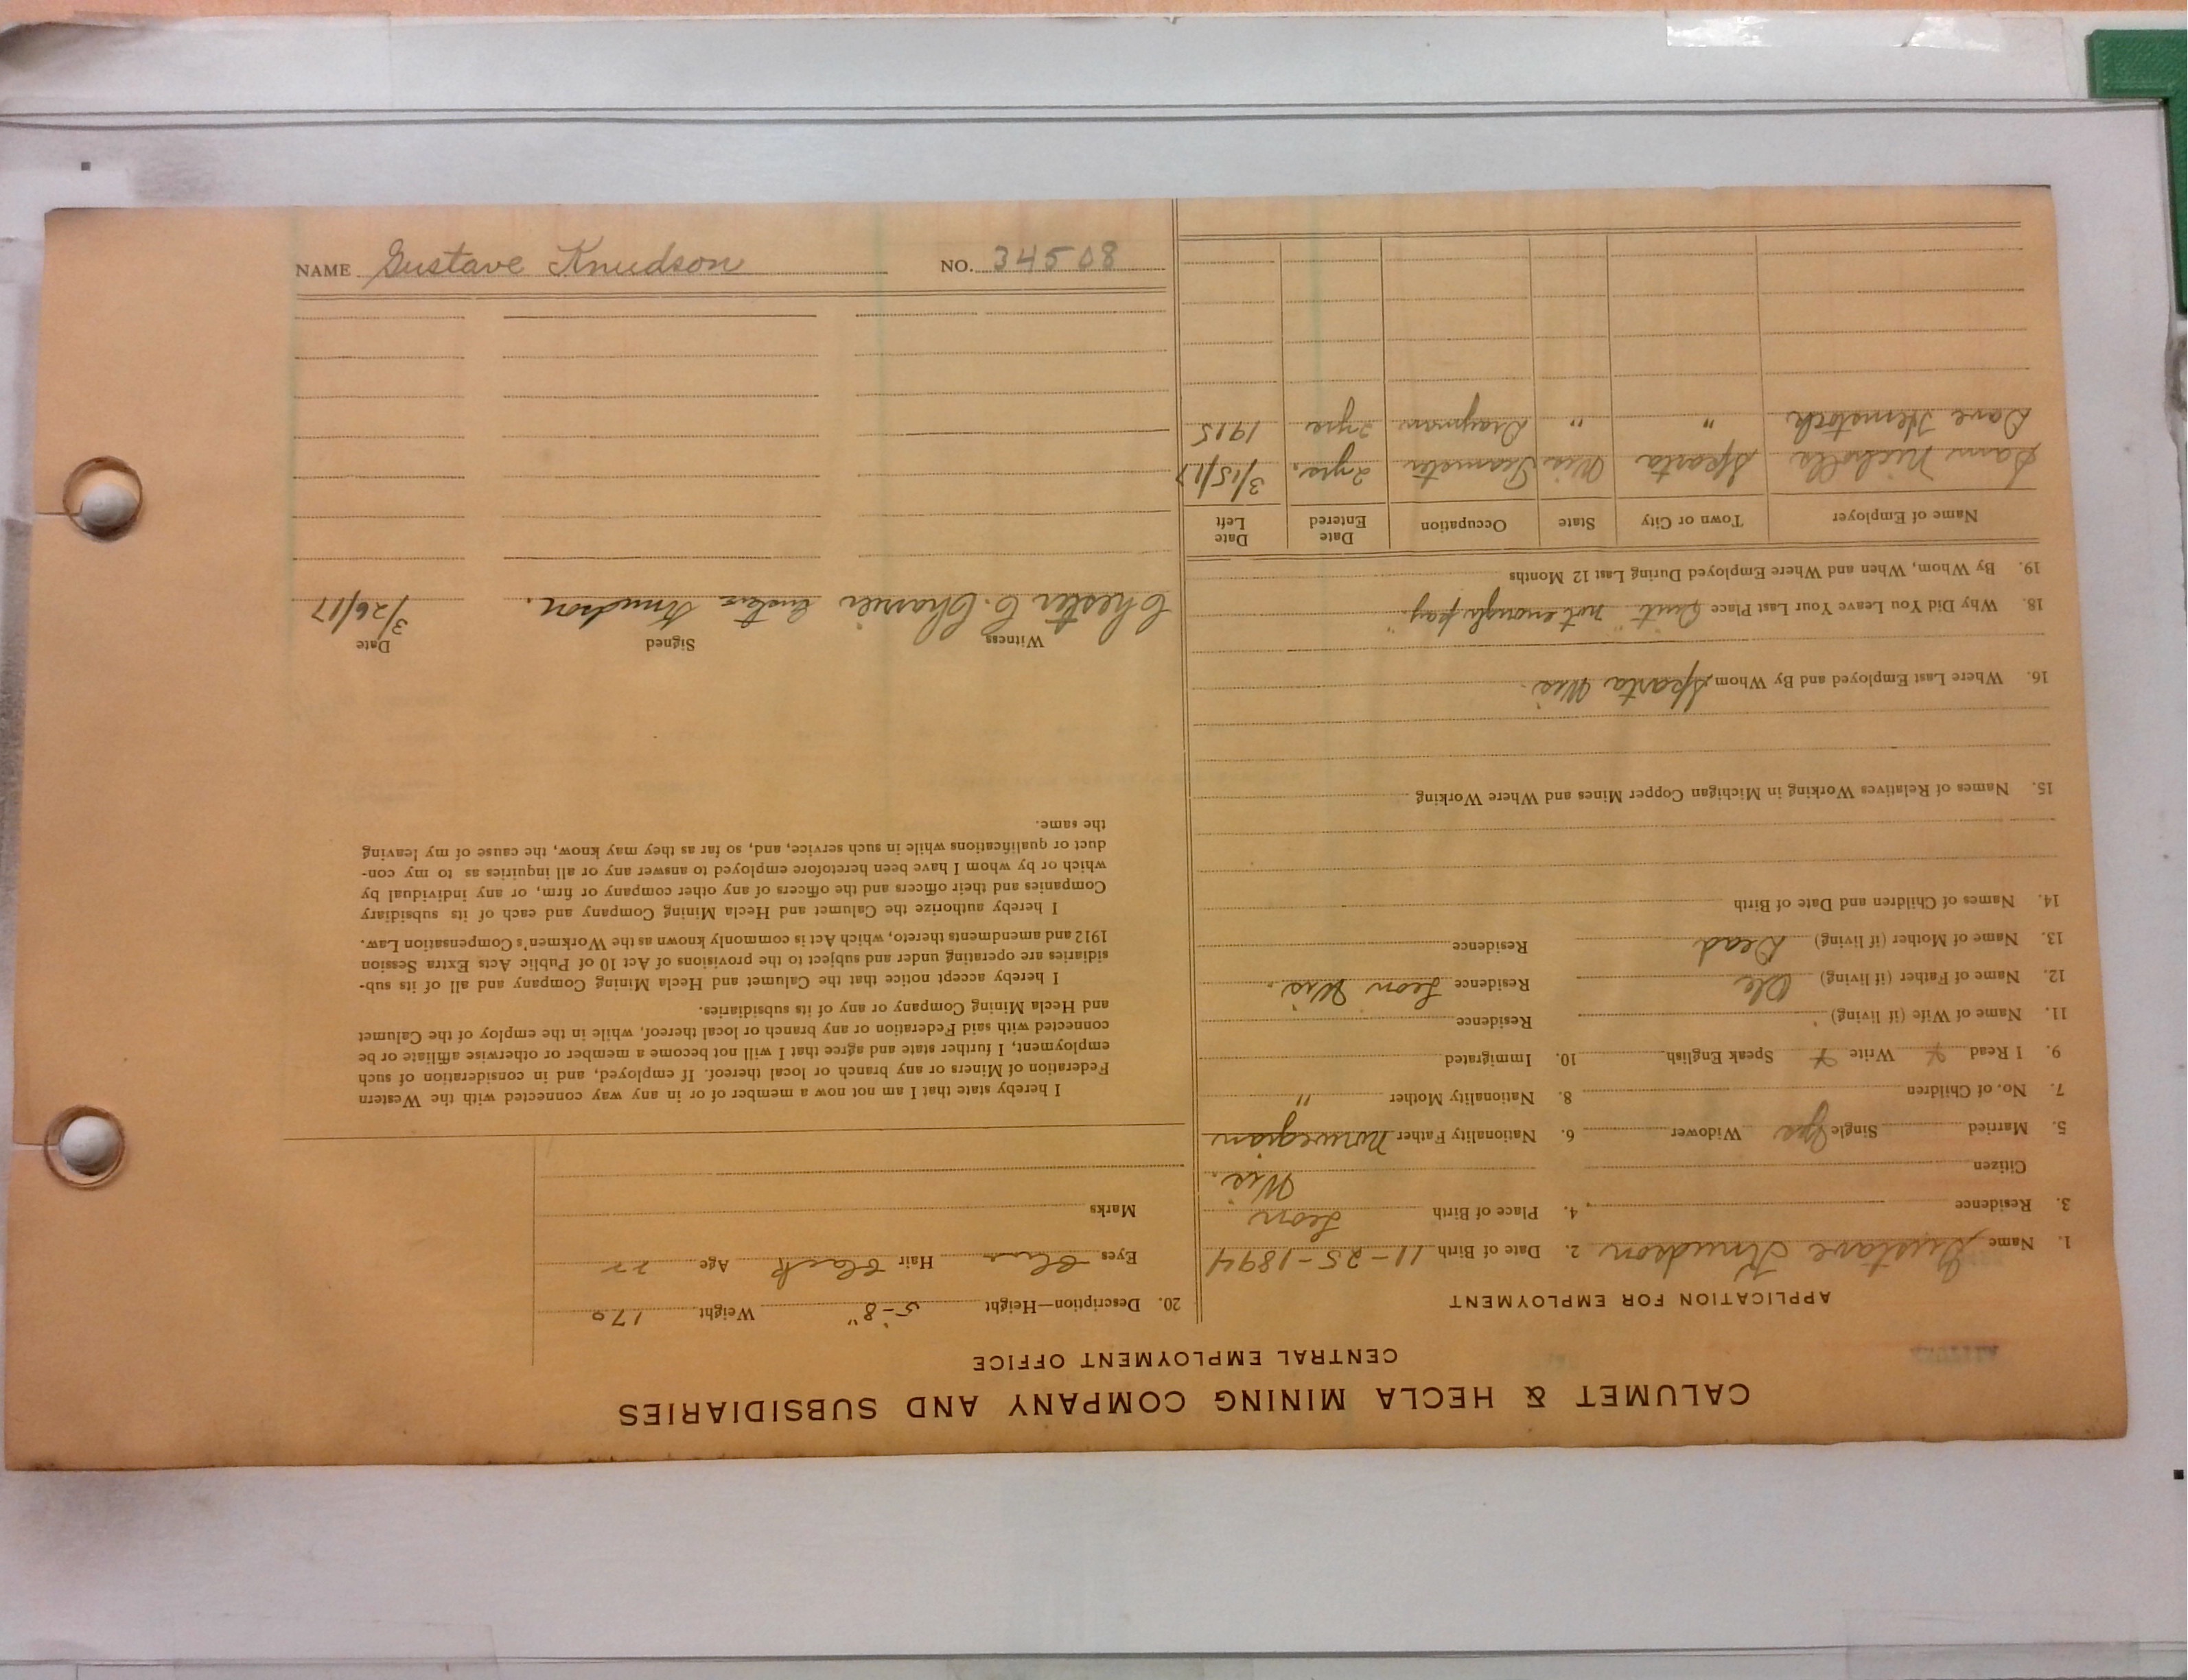 CALUMET & HECLA MINING COMPANY AND SUBSIDIARIES
CENTRAL EMPLOYMENT OFFICE
APPLICATION FOR EMPLOYMENT
1. Name Gustave Knudson 2. Date of Birth 11-25-1894
3. Residence 4. Place of Birth Leon
Wis.
Citizen
5. Married Single Yes Widower 6. Nationality Father Norwegian
7. No. of Children 8. Nationality Mother "
9. I Read Write Speak English 10. Immigrated
11. Name of Wife (if living) Residence
12. Name of Father (if living) Ole Residence Leon Wis.
13. Name of Mother (if living) Dead Residence
14. Names of Children and Date of Birth
15. Names of Relatives Working in Michigan Copper Mines and Where Working
16. Where Last Employed and By Whom Sparta Wis.
18. Why Did You Leave Your Last Place Quit "not enough pay."
19. By Whom, When and Where Employed During Last 12 Months
Name of Employer Town or City State Occupation Date Entered Date Left
Sam Nicholls Sparta Wis. Teamster 2 yrs. 3/15/17
Dave " " Drayman 1915
20. Description—Height 5-8" Weight 170
Eyes Blue Hair Black Age 22
Marks
I hereby state that I am not now a member of or in any way connected with the Western
Federation of Miners or any branch or local thereof. If employed, and in consideration of such
employment, I further state and agree that I will not become a member or otherwise affiliate or be
connected with said Federation or any branch or local thereof, while in the employ of the Calumet
and Hecla Mining Company or any of its subsidiaries.
I hereby accept notice that the Calumet and Hecla Mining Company and all of its sub-
sidiaries are operating under and subject to the provisions of Act 10 of Public Acts Extra Session
1912 and amendments thereto, which Act is commonly known as the Workmen's Compensation Law.
I hereby authorize the Calumet and Hecla Mining Company and each of its subsidiary
Companies and their officers and the officers of any other company or firm, or any individual by
which or by whom I have been heretofore employed to answer any or all inquiries as to my con-
duct or qualifications while in such service, and, so far as they may know, the cause of my leaving
the same.
Witness Signed Date
Chester C. Gustave Knudson. 3/26/17
NAME Gustave Knudson NO. 34508